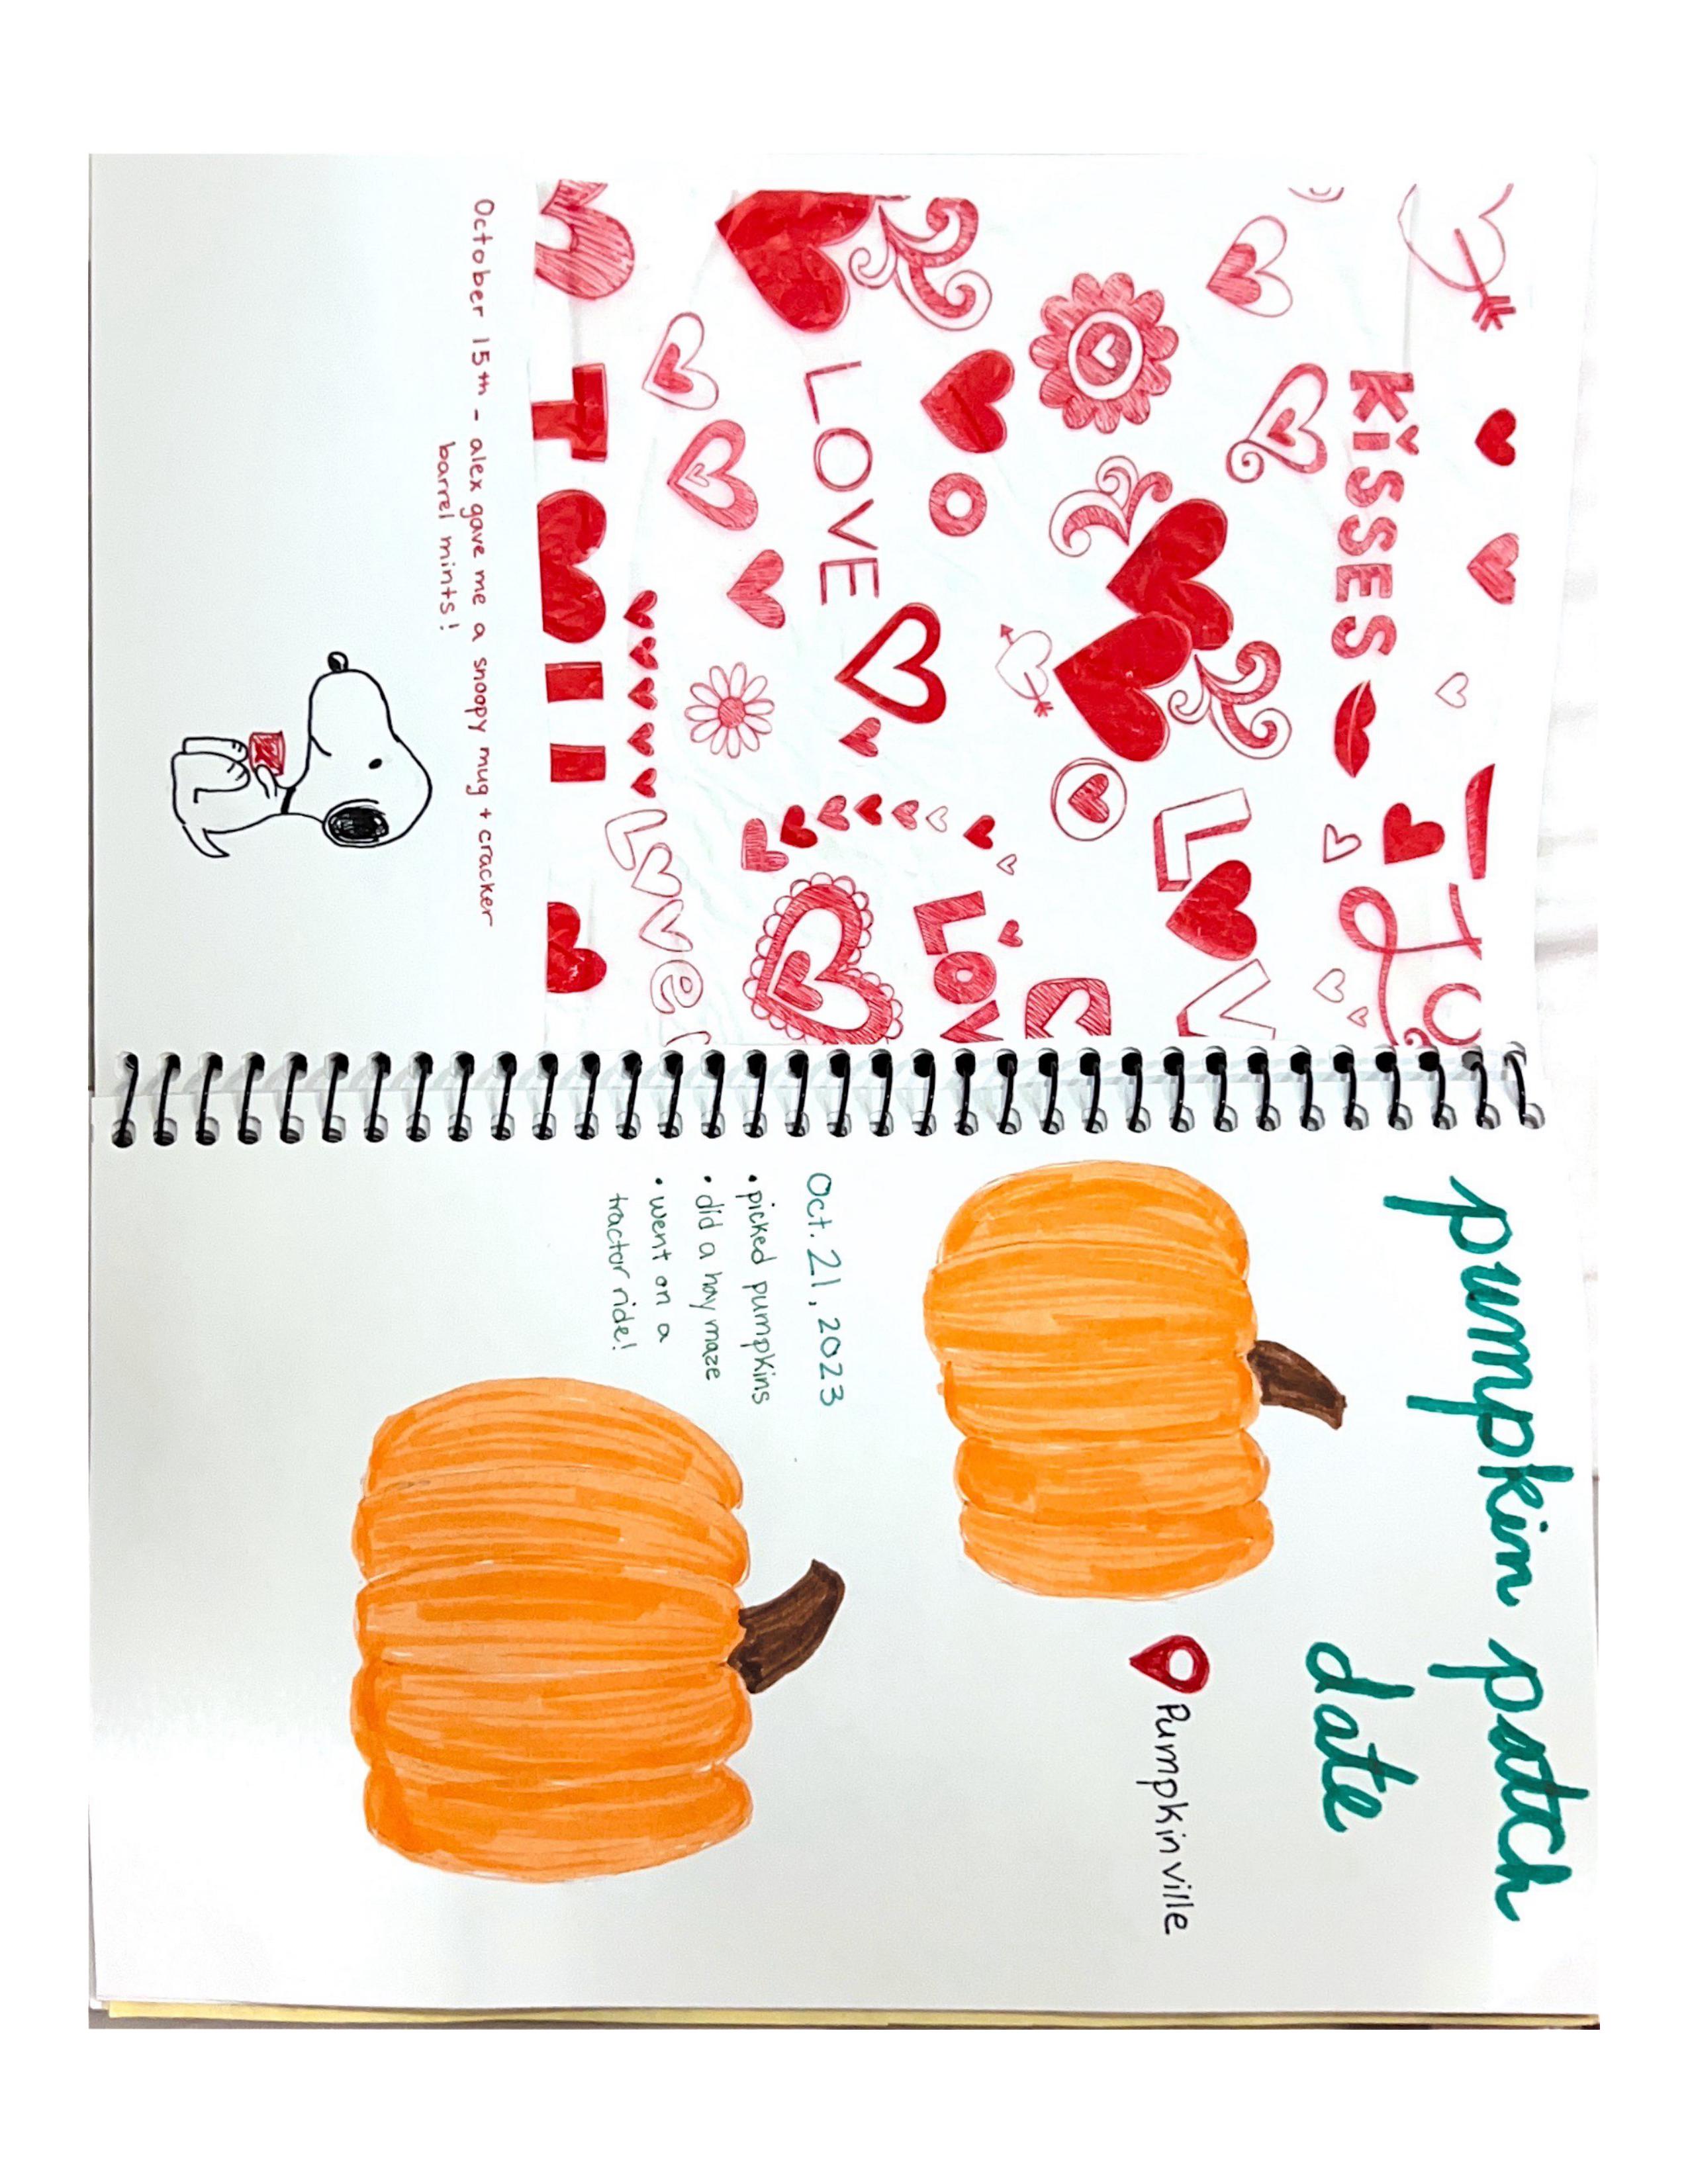 KISSES
LOVE
LOV
LOV
Love
October 15th - alex gave me a snoopy mug + cracker
barrel mints!
pumpkin patch
date
Pumpkinville
Oct. 21, 2023
• picked pumpkins
• did a hay maze
• went on a
tractor ride!